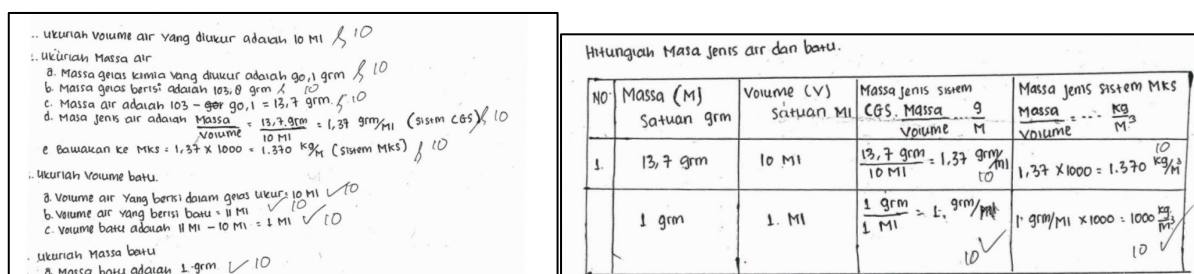 .. ukurlah volume air yang diukur adalah 10 Ml 10
:. ukurlah Massa air
a. Massa gelas kimia yang diukur adalah 90,1 grm 10
b. Massa gelas berisi adalah 103,8 grm 10
c. Massa air adalah 103 - 90,1 = 13,7 grm. 10
d. Masa jenis air adalah Massa/Volume = 13,7.grm/10 Ml = 1,37 grm/Ml (sistm CGS) 10
e Bawakan ke Mks = 1,37 x 1000 = 1.370 kg/M (sistem Mks) 10
:. ukurlah Volume batu.
a. Volume air yang berisi dalam gelas ukur: 10 Ml 10
b. Volume air yang berisi batu = 11 Ml 10
c. Volume batu adalah 11 Ml - 10 Ml = 1 Ml 10
. ukurlah Massa batu
a. Massa batu adalah 1 grm 10
Hitunglah Masa jenis air dan batu.
NO Massa (M) Satuan grm Volume (V) Satuan Ml Massa jenis sistem CGS. Massa/Volume g/M Massa jenis sistem MKS Massa/Volume = ... kg/M³
1. 13,7 grm 10 Ml 13,7 grm/10 Ml = 1,37 grm/ml 10 1,37 x 1000 = 1.370 kg/M³ 10
1 grm 1. Ml 1 grm/1 Ml = 1. grm/ml 10 1. grm/Ml x 1000 = 1000 kg/M³ 10